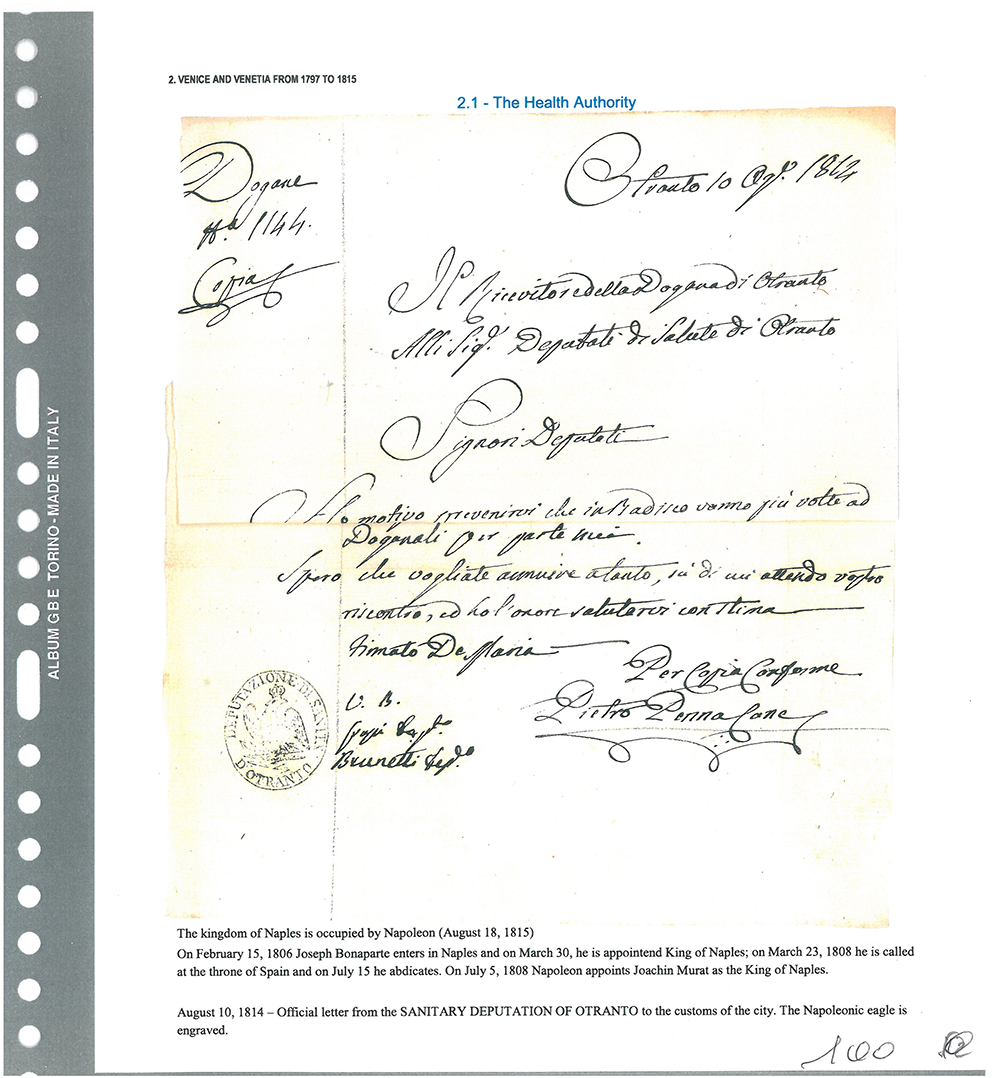 2. VENICE AND VENETIA FROM 1797 TO 1815
2.1 - The Health Authority
Dogane
N.º 1144.
Copia
Otranto 10 Ag.º 1814
Il Ricevitore della Dogana di Otranto
Alli Sig.ri Deputati di Salute di Otranto
Signori Deputati
Ho motivo prevenirvi che in Badisco vanno più volte ad
Doganali per parte mia.
Spero che vogliate annuire a tanto, su di cui attendo vostro
riscontro, ed ho l'onore salutarvi con stima
Firmato De Maria
Per Copia Conforme
Pietro Penna Canc
V. B.
Brunetti Dep.º
DEPUTAZIONE DI SANITA
D'OTRANTO
ALBUM GBE TORINO - MADE IN ITALY
The kingdom of Naples is occupied by Napoleon (August 18, 1815)
On February 15, 1806 Joseph Bonaparte enters in Naples and on March 30, he is appointend King of Naples; on March 23, 1808 he is called
at the throne of Spain and on July 15 he abdicates. On July 5, 1808 Napoleon appoints Joachin Murat as the King of Naples.
August 10, 1814 – Official letter from the SANITARY DEPUTATION OF OTRANTO to the customs of the city. The Napoleonic eagle is
engraved.
100